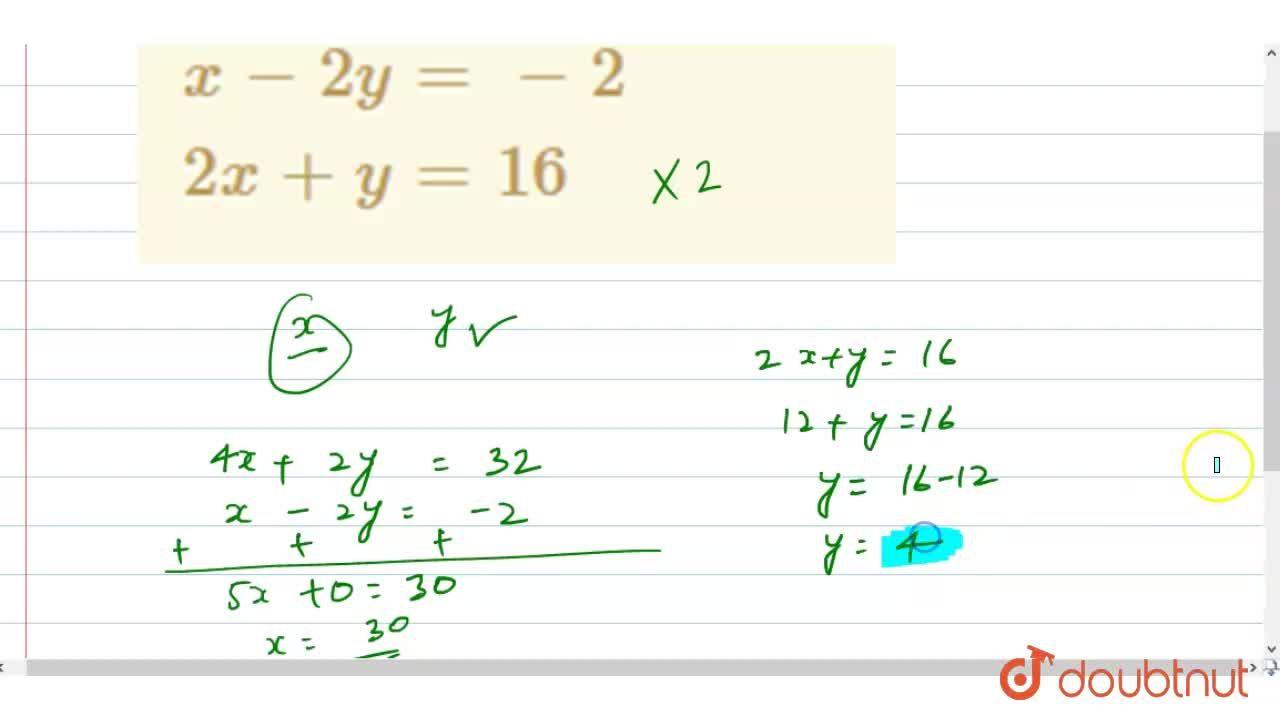 x − 2y = − 2
2x + y = 16 × 2
x y ✓
4x + 2y = 32
x − 2y = −2
+ + +
5x + 0 = 30
x = 30
2 x + y = 16
12 + y = 16
y = 16 − 12
y = 4
doubtnut